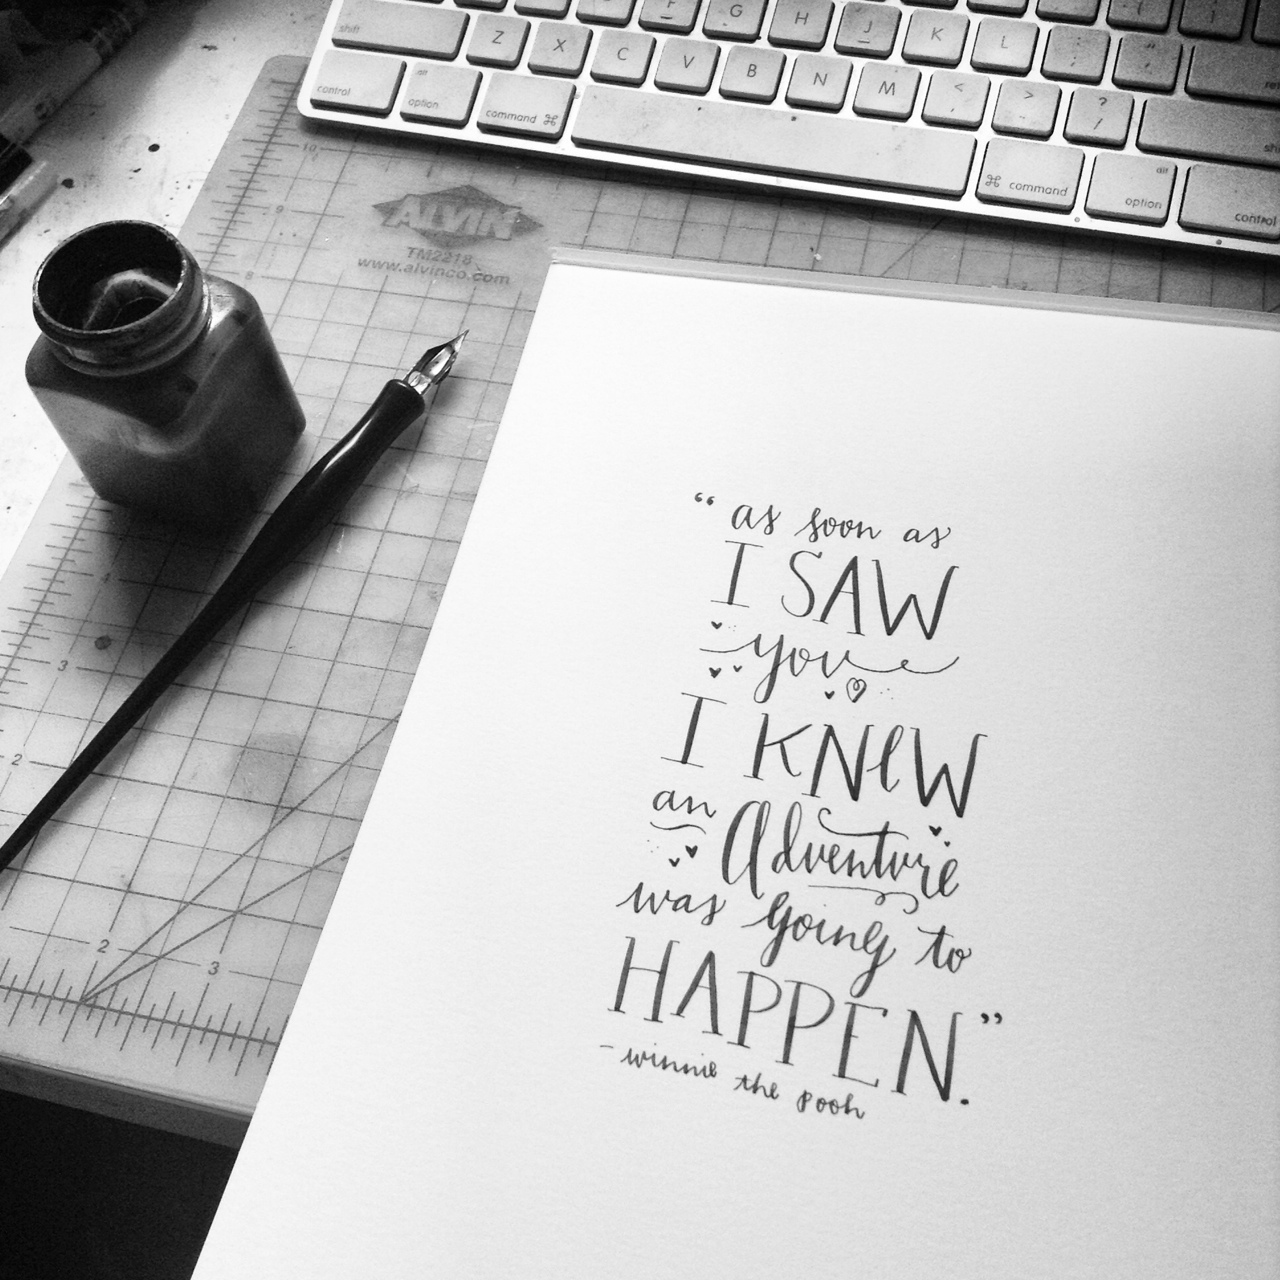 F G H J K L : ;
shift Z X C V B N M < , > . ? / shift
control alt option command ⌘ ⌘ command alt option control
10
9
ALVIN
TM2218
www.alvinco.com
8
4
3
2
2 3
“as soon as
I SAW
you
I KNeW
an Adventure
was going to
HAPPEN.”
- winnie the pooh